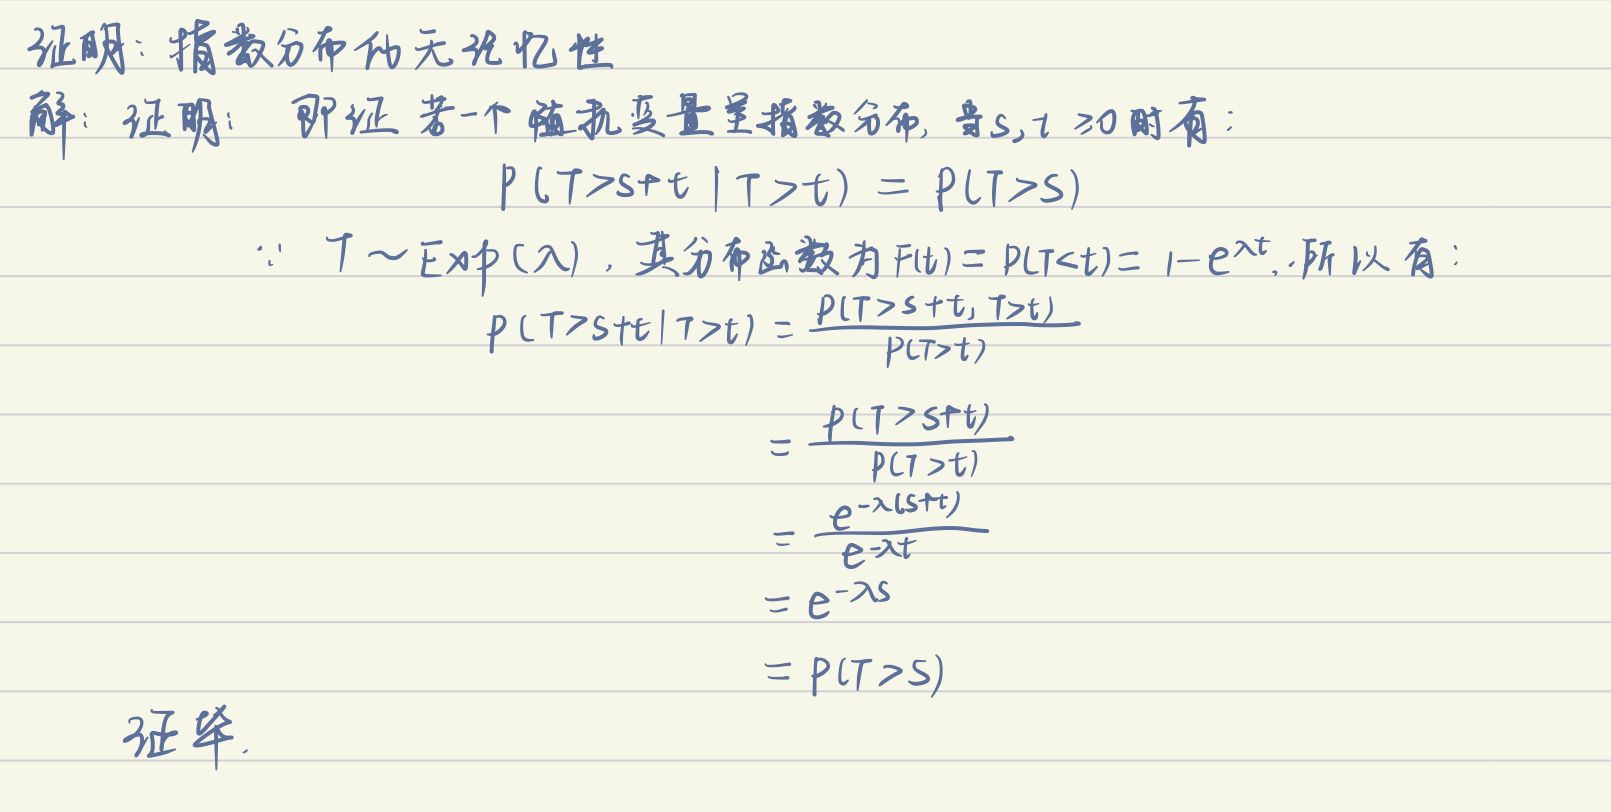 证明：指数分布的无记忆性
解：证明：即证若一个随机变量呈指数分布，当s,t ≥0时有：
P(T>s+t|T>t) = P(T>S)
∵ T～Exp(λ)，其分布函数为F(t)=P(T<t)=1-e^{λt},∴所以有：
P(T>s+t|T>t) = \frac{P(T>s+t, T>t)}{P(T>t)}
= \frac{P(T>s+t)}{P(T>t)}
= \frac{e^{-λ(s+t)}}{e^{-λt}}
= e^{-λs}
= P(T>S)
证毕.